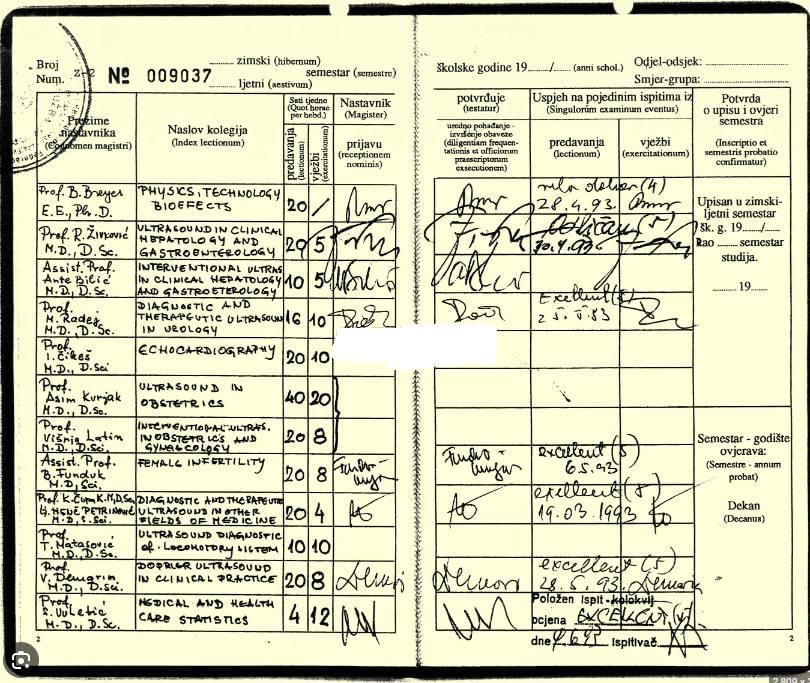 Broj
Num.
Z-2 № 009037
zimski (hibernum)
semestar (semestre)
ljetni (aestivum)
Prezime nastavnika
(Cognomen magistri)
Naslov kolegija
(Index lectionum)
Sati tjedno
(Quot horae per hebd.)
predavanja
(lectionum)
vježbi
(exercitationum)
Nastavnik
(Magister)
prijavu
(receptionem nominis)
Prof. B. Breyer
E.E., Ph. D.
PHYSICS, TECHNOLOGY
BIOEFFECTS
20 /
Prof. R. Živković
M.D., D.Sc.
ULTRASOUND IN CLINICAL
HEPATOLOGY AND
GASTROENTEROLOGY
20 5
Assist. Prof.
Ante Bilić
M.D., D.Sc.
INTERVENTIONAL ULTRAS
IN CLINICAL HEPATOLOGY
AND GASTROETEROLOGY
10 5
Prof.
M. Radej
M.D., D.Sc.
DIAGNOSTIC AND
THERAPEUTIC ULTRASOUN
IN UROLOGY
16 10
Prof.
I. Čikeš
M.D., D.Sci
ECHOCARDIOGRAPHY
20 10
Prof.
Asim Kurjak
M.D., D.Sc.
ULTRASOUND IN
OBSTETRICS
40 20
Prof.
Višnja Latin
M.D., D.Sci.
INTERVENTIONAL ULTRAS.
IN OBSTETRICS AND
GYNAECOLOGY
20 8
Assist. Prof.
B. Funduk
M.D., Sci.
FEMALE INFERTILITY
20 8
DIAGNOSTIC AND THERAPEUTE
ULTRASOUND IN OTHER
FIELDS OF MEDICINE
20 4
Prof.
T. Matasović
M.D., D.Sc.
ULTRASOUND DIAGNOSTIC
of. LOCOMOTORY SISTEM
10 10
Prof.
V. Demarin
M.D., D.Sci.
DOPPLER ULTRASOUND
IN CLINICAL PRACTICE
20 8
Prof.
S. Vuletić
M.D., D.Sc.
MEDICAL AND HEALTH
CARE STATISTICS
4 12
2
školske godine 19...../..... (anni schol.)
Odjel-odsjek:
Smjer-grupa:
potvrđuje
(testatur)
uredno pohađanje -
izvršenje obaveze
(diligentiam frequen-
tationis et officiorum
praescriptorum
exsecutionem)
Uspjeh na pojedinim ispitima iz
(Singulorum examinum eventus)
predavanja
(lectionum)
vježbi
(exercitationum)
Potvrda
o upisu i ovjeri
semestra
(Inscriptio et
semestris probatio
confirmatur)
Upisan u zimski-
ljetni semestar
šk. g. 19...../.....
kao ..... semestar
studija.
19.....
vrlo dobar (4)
28.4.93.
(5)
30.4.93
Exellent (5)
25. V. 93
excellent (5)
6.5.93
exellent (5)
19.03.1993
excellent (5)
28.5.93.
Položen ispit - kolokvij
ocjena EXCELLENT
dne
ispitivač
Semestar - godište
ovjerava:
(Semestre - annum
probat)
Dekan
(Decanus)
2